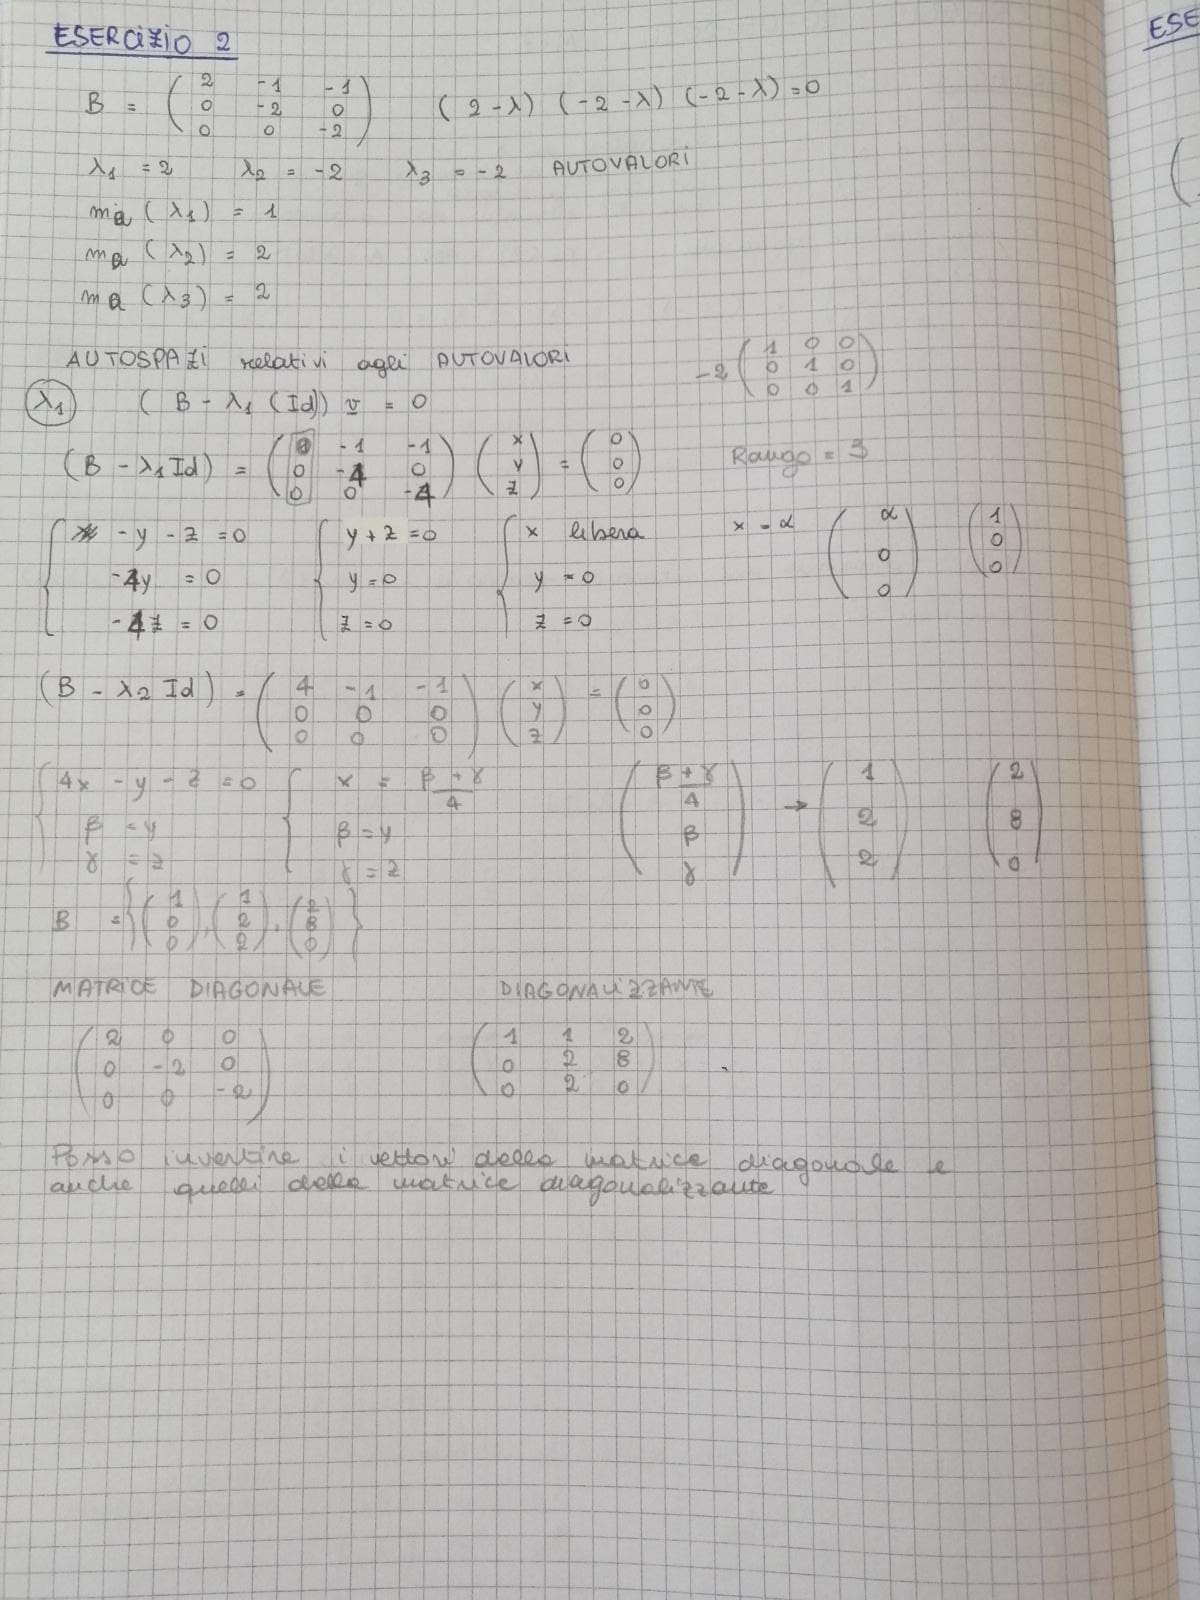 ESERCIZIO 2
ESE
B = ( 2 -1 -1 ; 0 -2 0 ; 0 0 -2 ) (2-λ) (-2-λ) (-2-λ) = 0
λ1 = 2 λ2 = -2 λ3 = -2 AUTOVALORI
ma (λ1) = 1
ma (λ2) = 2
ma (λ3) = 2
AUTOSPAZI relativi agli AUTOVALORI -2 ( 1 0 0 ; 0 1 0 ; 0 0 1 )
λ1 ( B - λ1 (Id)) v = 0
(B - λ1 Id) = ( 0 -1 -1 ; 0 -4 0 ; 0 0 -4 ) ( x ; y ; z ) = ( 0 ; 0 ; 0 ) Rango = 3
{ -y - z = 0 { y + z = 0 { x libera x = α ( α ; 0 ; 0 ) ( 1 ; 0 ; 0 )
-4y = 0 y = 0 y = 0
-4z = 0 z = 0 z = 0
(B - λ2 Id) = ( 4 -1 -1 ; 0 0 0 ; 0 0 0 ) ( x ; y ; z ) = ( 0 ; 0 ; 0 )
{ 4x - y - z = 0 { x = (β + γ)/4 ( (β + γ)/4 ; β ; γ ) → ( 1 ; 2 ; 2 ) ( 2 ; 8 ; 0 )
β = y β = y
γ = z γ = z
B = { ( 1 ; 0 ; 0 ), ( 1 ; 2 ; 2 ), ( 2 ; 8 ; 0 ) }
MATRICE DIAGONALE DIAGONALIZZANTE
( 2 0 0 ; 0 -2 0 ; 0 0 -2 ) ( 1 1 2 ; 0 2 8 ; 0 2 0 )
Posso invertire i vettori della matrice diagonale e
anche quelli della matrice diagonalizzante